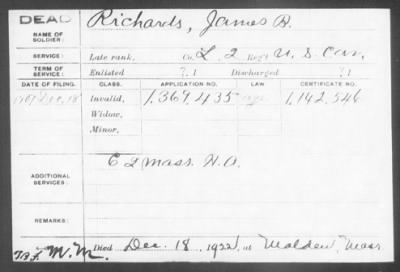 DEAD
NAME OF SOLDIER: Richards, James B.
SERVICE: Late rank, Co. L, 2 Reg't U. S. Cav.
TERM OF SERVICE: Enlisted ?, 1 Discharged ?, 1
DATE OF FILING. CLASS. APPLICATION NO. LAW CERTIFICATE NO.
Dec. 18 Invalid, 1,369,435 1,142,546
Widow,
Minor,
ADDITIONAL SERVICES: C L Mass. H. A.
REMARKS:
M. M. Died Dec. 18, 1922, at Malden, Mass